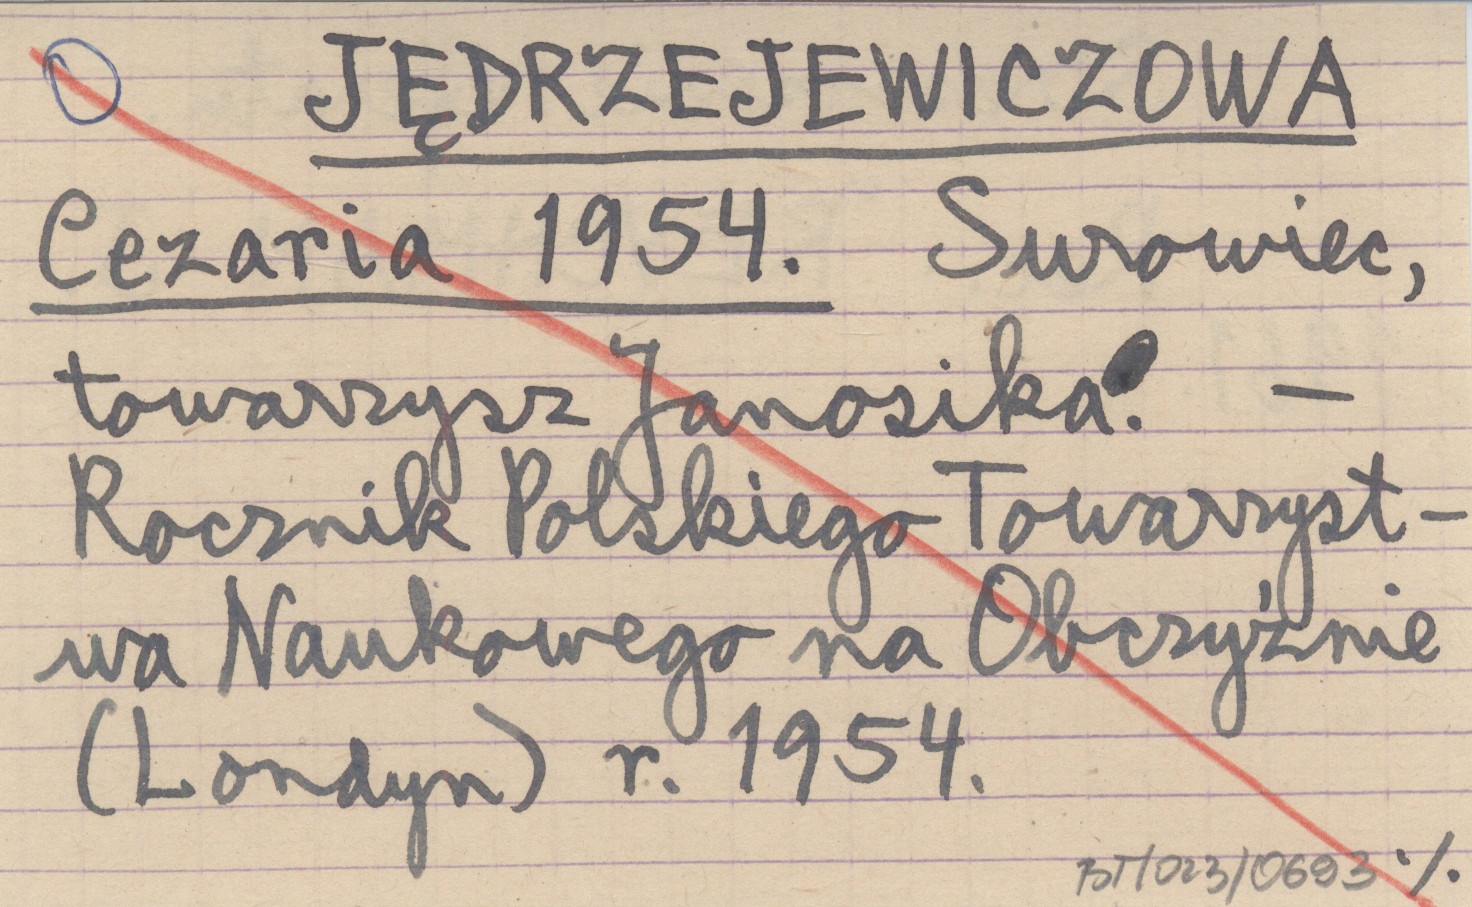 JĘDRZEJEWICZOWA
Cezaria 1954. Surowiec,
towarzysz Janosika. —
Rocznik Polskiego Towarzyst-
wa Naukowego na Obczyźnie
(Londyn) r. 1954.
BT/023/0693 ./.